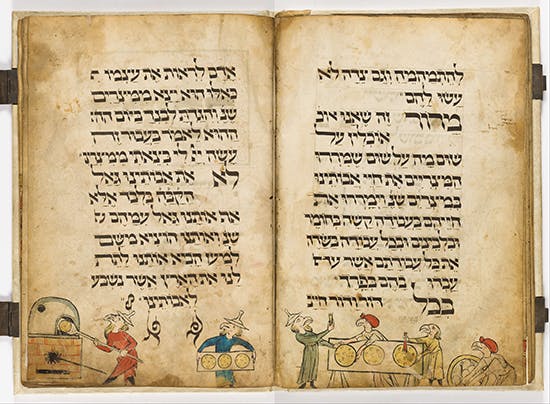 להתמהמה וגם צדה לא
עשו להם
מרור זה שאנו אוכ
אוכלין על
שום מה על שום שמררו
המצריים את חיי אבותינו
במצרים שנ וימררו את
חייהם בעבודה קשה בחומר
ובלבנים ובכל עבודה בשדה
את כל עבודתם אשר עבדו
בהם בפרך
בכל דור ודור חייב
אדם לראות את עצמו
כאלו הוא יצא ממצרים
שנ והגדת לבנך ביום הה
ההוא לאמר בעבור זה
עשה יי לי בצאתי ממצרים
לא את אבותינו גאל
הקבה אלא
אף אותנו גאל עמהם ש
שנ ואותנו הוציא משם
למען הביא אותנו לתת
לנו את הארץ אשר נשבע
לאבותינו